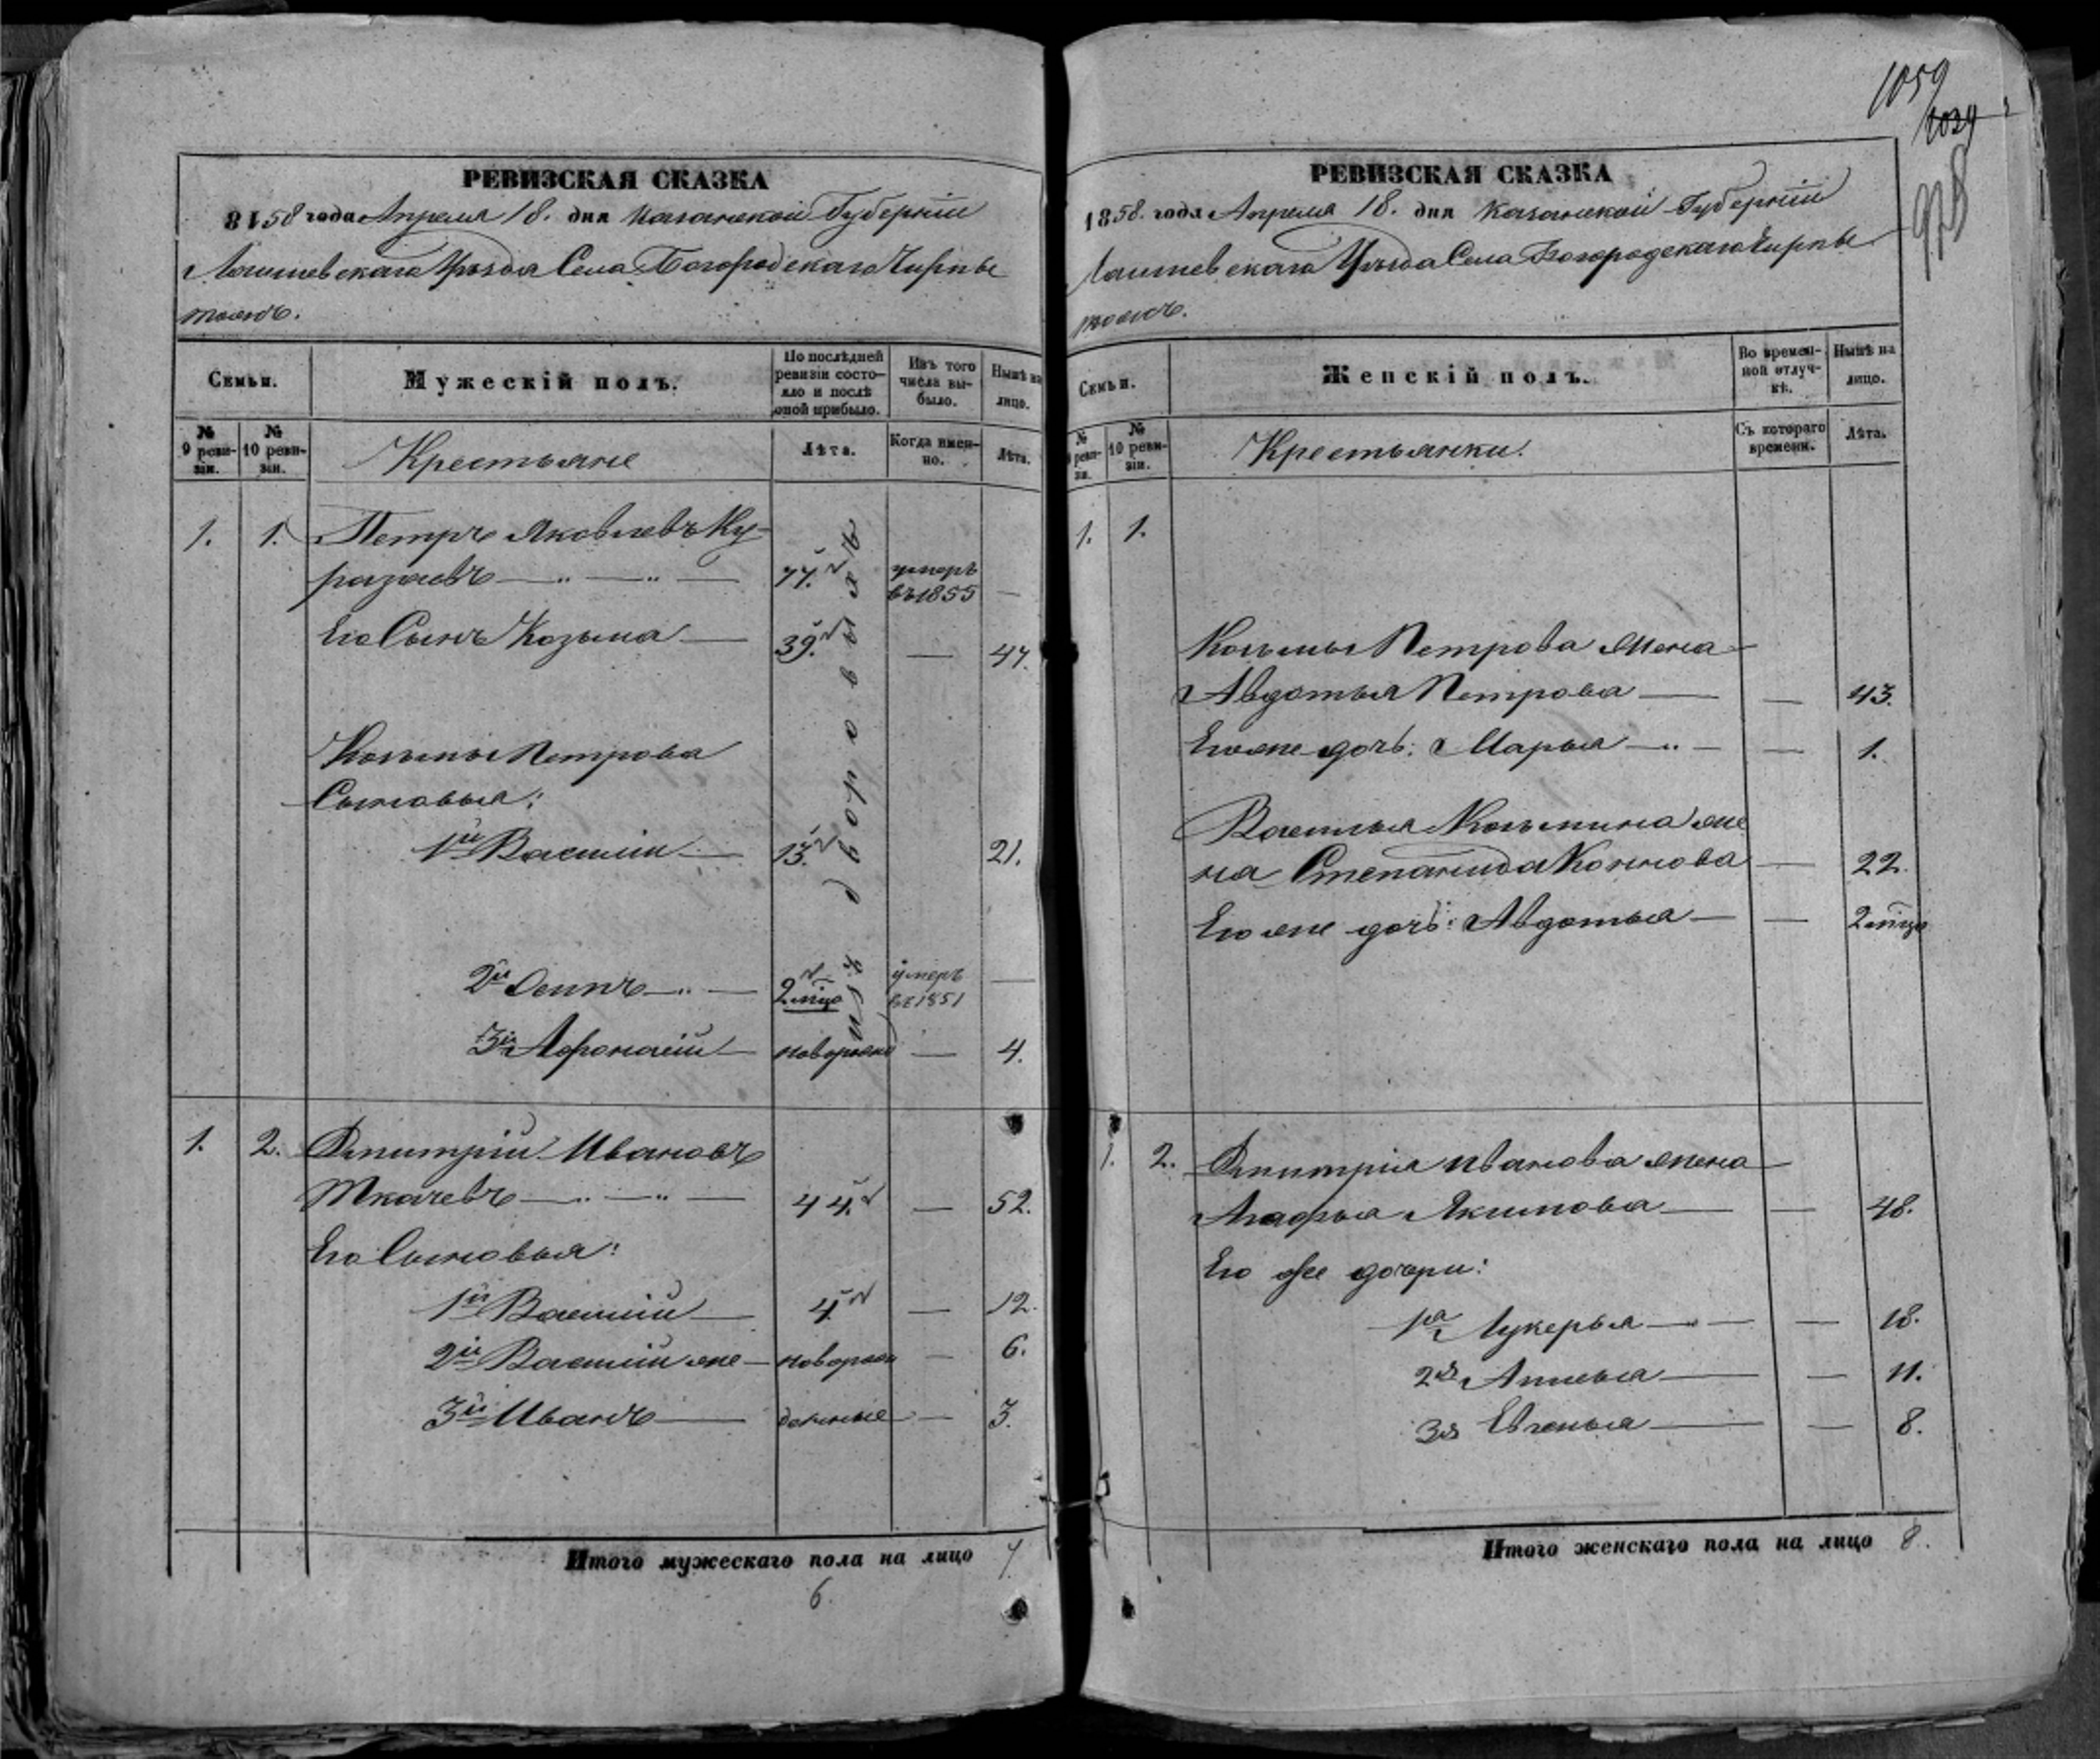 РЕВИЗСКАЯ СКАЗКА
8158 года Апреля 18. дня Казанской Губерніи
Лаишевскаго Уѣзда Села Богородскаго Чирпы
тожъ.
Семьи.
Мужескій полъ.
По послѣдней ревизіи состояло и послѣ оной прибыло.
Изъ того числа выбыло.
Нынѣ на лицо.
№ 9 ревизіи.
№ 10 ревизіи.
Крестьяне
Лѣта.
Когда именно.
Лѣта.
1. 1. Петръ Яковлевъ Ку-
— „ — „ — 77. умеръ въ 1855 —
Его Сынъ Козьма — 39. — 47.
Козьмы Петрова
Сыновья:
1й Василій — 13. 21.
2й Осипъ — „ — 2 мѣца умеръ въ 1851 —
3й Афонасій — новорожд — 4.
изъ дворовыхъ
1. 2. Дмитрій Ивановъ
Ткачевъ — „ — „ — 44. — 52.
Его Сыновья:
1й Василій — 4. — 12.
2й Василій же — новорож — 6.
3й Иванъ — денные — 3.
Итого мужескаго пола на лицо 7.
6.
1059
1039
978
РЕВИЗСКАЯ СКАЗКА
1858. года Апреля 18. дня Казанской Губерніи
Лаишевскаго Уѣзда Села Богородскаго Чирпы
тожъ.
Семьи.
Женскій полъ.
Во временной отлучкѣ.
Нынѣ на лицо.
№ 9 ревизіи.
№ 10 ревизіи.
Крестьянки.
Съ котораго времени.
Лѣта.
1. 1.
Козьмы Петрова жена
Авдотья Петрова — — 43.
Его же дочь: Марья — „ — — 1.
Василья Козьмина же
на Степанида — 22.
Его же дочь: Авдотья — — 2 мѣца
1. 2. Дмитрія Иванова жена
Агафья Якимова — — 48.
Его же дочери:
1я Лукерья — „ — — 18.
2я — — 11.
3я Евгенья — — 8.
Итого женскаго пола на лицо 8.